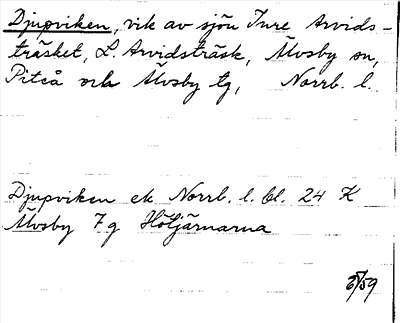 Djupviken, vik av sjön Inre Arvids-
träsket, L. Arvidsträsk, Älvsby sn,
Piteå och Älvsby tg, Norrb. l.
Djupviken ek Norrb. l. bl. 24 K
Älvsby 7 g Hötjärnarna